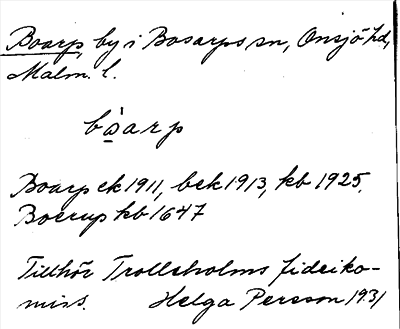 Boarp, by i Bosarps sn, Onsjö hd,
Malm. l.
bòarp
Boarp ek 1911, bek 1913, kb 1925.
Boerup kb 1647
Tillhör Trollsholms fideiko-
miss. Helga Persson 1931